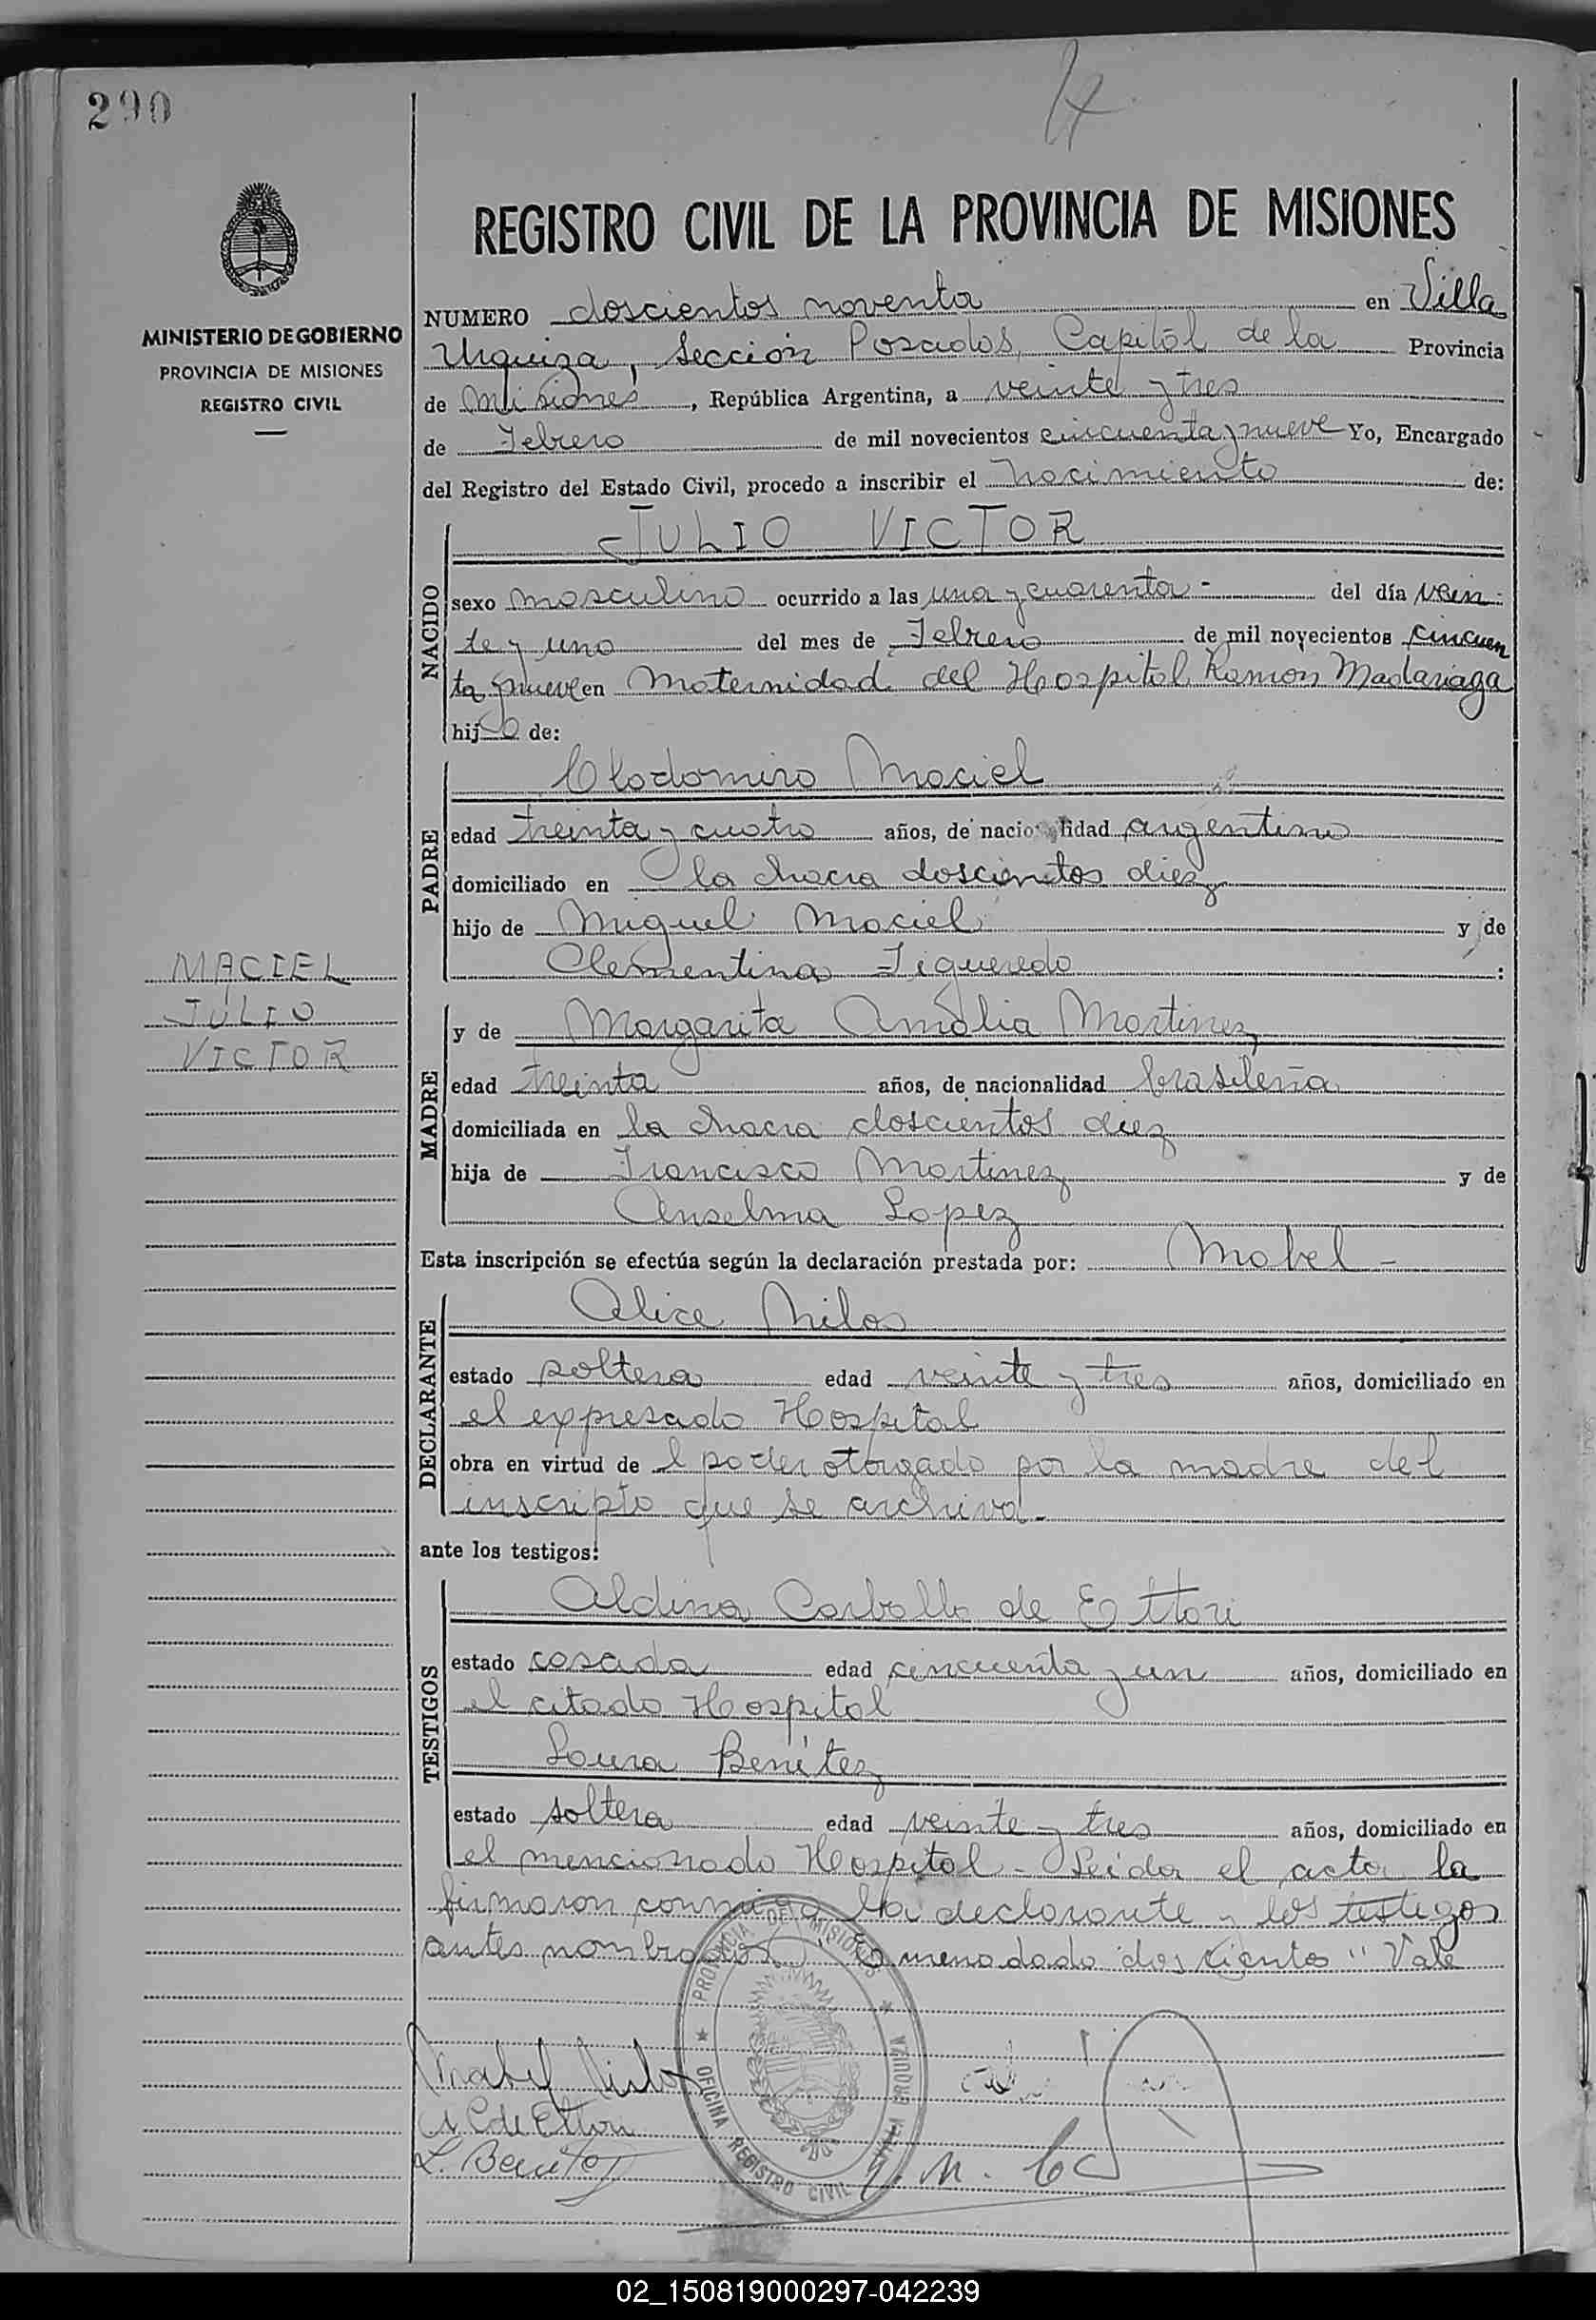 290
4
MINISTERIO DE GOBIERNO
PROVINCIA DE MISIONES
REGISTRO CIVIL
REGISTRO CIVIL DE LA PROVINCIA DE MISIONES
NUMERO doscientos noventa en Villa
Urquiza, Sección Posadas, Capital de la Provincia
de Misiones, República Argentina, a veinte y tres
de Febrero de mil novecientos cincuenta y nueve Yo, Encargado
del Registro del Estado Civil, procedo a inscribir el nacimiento de:
NACIDO
JULIO VICTOR
sexo masculino ocurrido a las una y cuarenta - del día vein-
te y uno del mes de Febrero de mil novecientos cincuen
ta y nueve en Maternidad del Hospital Ramon Madariaga
hijo de:
PADRE
Clodomiro Maciel
edad treinta y cuatro años, de nacionalidad argentino
domiciliado en la chacra doscientos diez
hijo de Miguel Maciel y de
Clementina Figueredo :
MACIEL
JULIO
VICTOR
MADRE
y de Margarita Amalia Martinez
edad treinta años, de nacionalidad brasileña
domiciliada en la chacra doscientos diez
hija de Francisco Martinez y de
Anselma Lopez
Esta inscripción se efectúa según la declaración prestada por: Mabel -
DECLARANTE
Alice Milos
estado soltera edad veinte y tres años, domiciliado en
el expresado Hospital
obra en virtud de l poder otorgado por la madre del
inscripto que se archiva.-
ante los testigos:
TESTIGOS
Aldina Carballo de Ettori
estado casada edad cincuenta y un años, domiciliado en
el citado Hospital
Laura Benítez
estado soltera edad veinte y tres años, domiciliado en
el mencionado Hospital - Leida el acta la
firmaron conmigo la declarante y los testigos
antes nombrados. Enmendado "doscientos" Vale
PROVINCIA DE MISIONES
OFICINA REGISTRO CIVIL VILLA URQUIZA
Mabel Milos
A. C de Ettori
L. Benítez
02_150819000297-042239